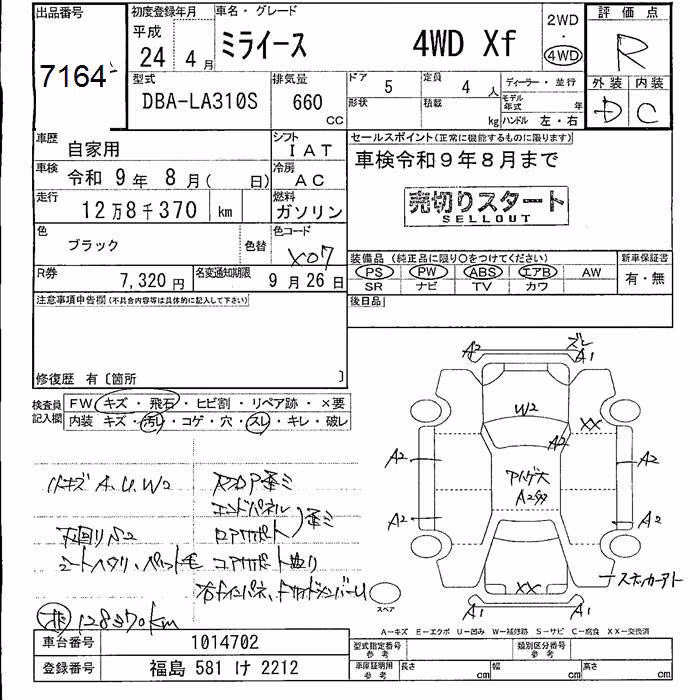 出品番号
7164
初度登録年月
平成
24年 4月
車名・グレード
ミライース 4WD Xf
2WD
・
4WD
評価点
R
外装 内装
D C
型式
DBA-LA310S
排気量
660
CC
ドア 5
定員 4 人
形状
積載 kg
ディーラー・並行
モデル年式 年
ハンドル 左・右
車歴
自家用
シフト
IAT
車検
令和 9年 8月( 日)
冷房
AC
走行
12万8千370 km
燃料
ガソリン
色
ブラック
色替
色コード
X07
R券
7,320円
名変通知期限
9月26日
セールスポイント(正常に機能するものに限ります)
車検令和9年8月まで
売切りスタート
SELLOUT
装備品 (純正品に限り○をつけてください)
PS PW ABS エアB AW
SR ナビ TV カワ
新車保証書
有・無
後日品
注意事項申告欄(不具合内容等は具体的に記入して下さい)
修復歴 有〔箇所 〕
検査員
記入欄
FW キズ・飛石・ヒビ割・リペア跡・×要
内装 キズ・汚レ・コゲ・穴・スレ・キレ・破レ
小キズ A.U.W2
下回りS2
シートヘタリ、ペット毛
エンドパネル
128370km
A2 A1
ズレ
W2
XX
A2
A2 A2
A2 A2
XX
A1 A1
ステッカーアト
スペア
A―キズ E―エクボ U―凹み W―補修跡 S―サビ C―腐食 XX―交換済
車台番号
1014702
登録番号
福島 581 け 2212
型式指定番号
参考
類別区分番号
参考
車庫証明用
参考
長さ cm 幅 cm 高さ cm